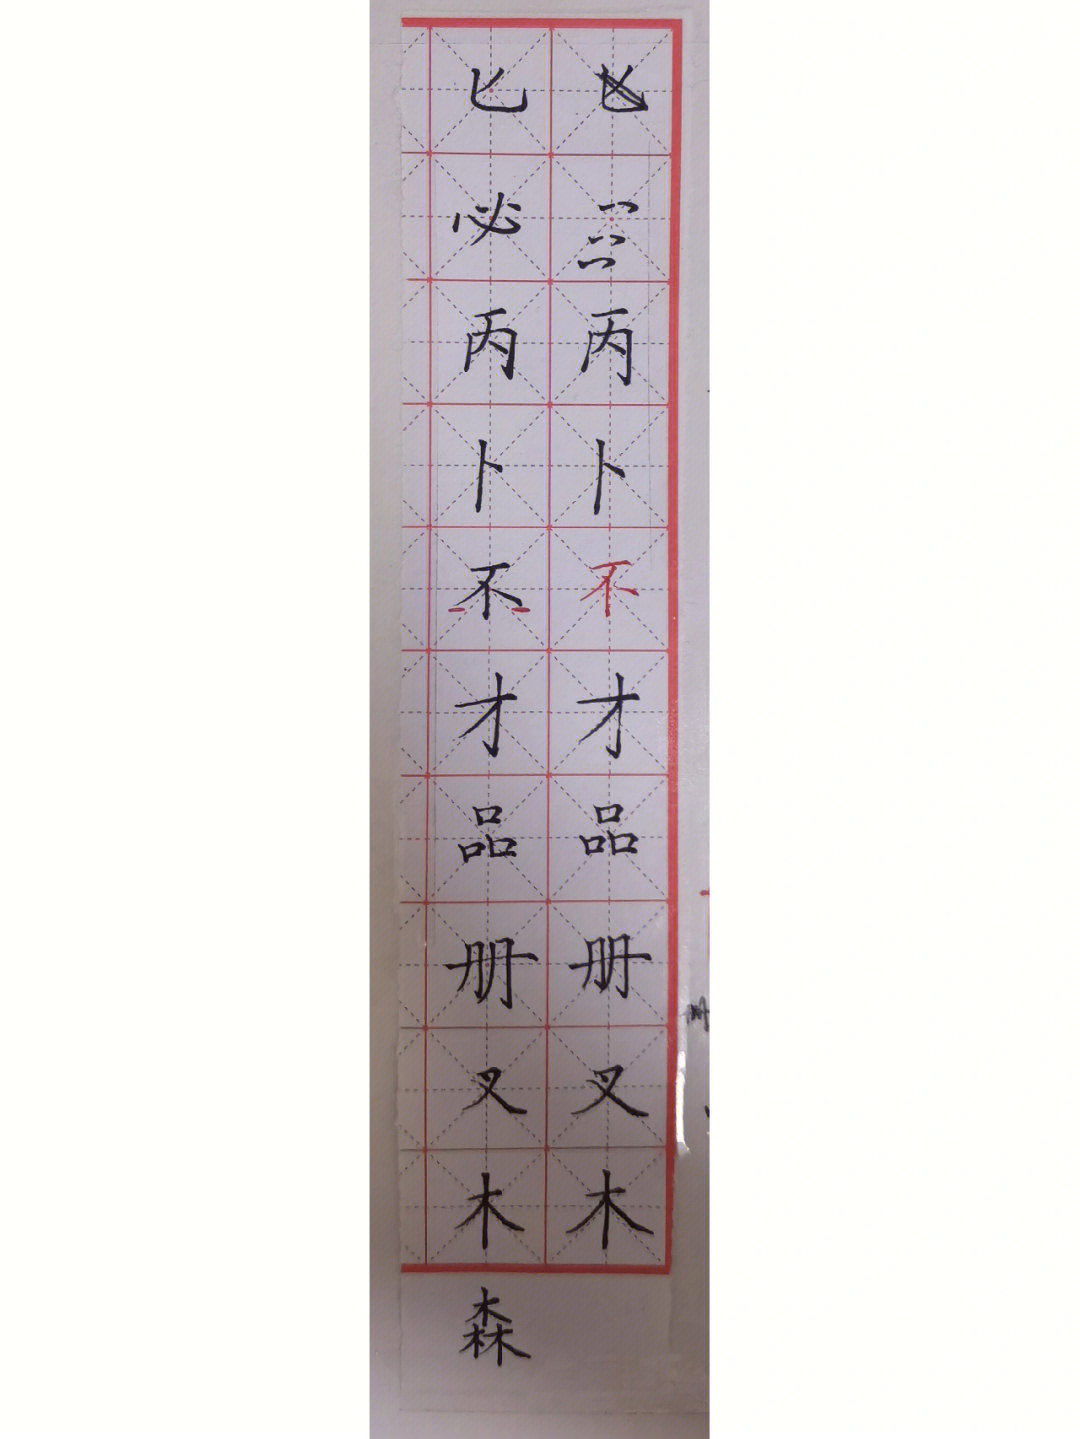 丙卜不才品册叉木
匕必丙卜不才品册叉木森